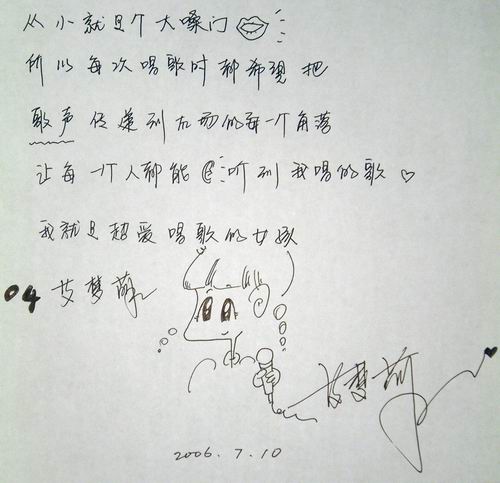 从小就是个大嗓门
所以每次唱歌时都希望把
歌声传递到在场的每一个角落
让每一个人都能听到我唱的歌
我就是超爱唱歌的女孩
04 艾梦萌
艾梦萌
2006.7.10